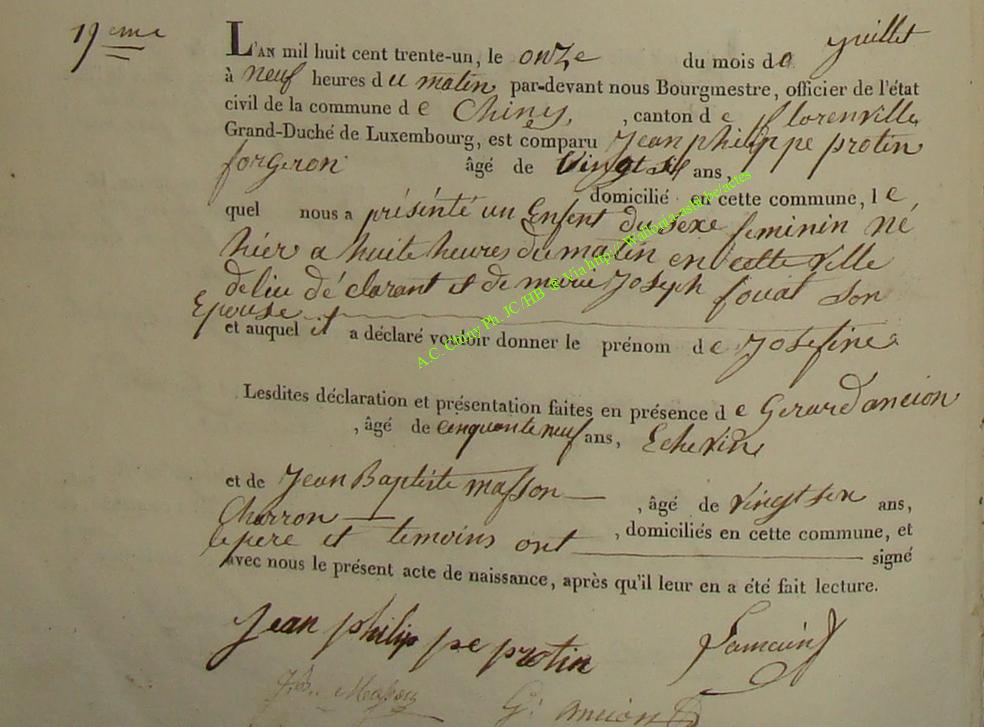 19eme
L'AN mil huit cent trente-un, le onze du mois de juillet
à neuf heures du matin par-devant nous Bourgmestre, officier de l'état
civil de la commune de Chiny, , canton de florenville
Grand-Duché de Luxembourg, est comparu Jean philippe protin
forgeron âgé de vingt six ans,
domicilié en cette commune, le
quel nous a présénté un Enfant du sexe feminin né
hier a huite heures du matin en cette ville
de lui déclarant et de marie Joseph fouat son
Epouse
et auquel il a déclaré vouloir donner le prénom de Josefine
Lesdites déclaration et présentation faites en présence de Gerard ancion
, âgé de cinquante neuf ans, Echevin
et de Jean Baptiste masson , âgé de vingt six ans,
Charron , domiciliés en cette commune, et
le pere et temoins ont signé
avec nous le présent acte de naissance, après qu'il leur en a été fait lecture.
Jean philippe protin
G. ancion
A.C. Chiny Ph. JC /HB & Via http:// Wallonia-asbl.be/actes